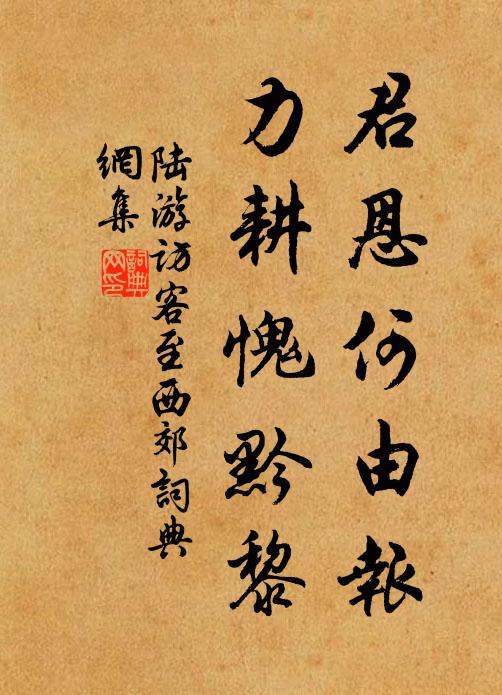 君恩何由報
力耕愧黔黎
陆游访客至西郊詞典
網集
詞典網印